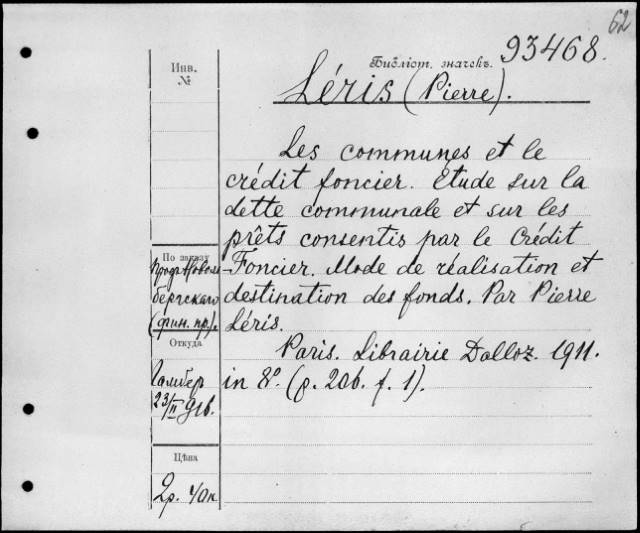 62
93468.
Инв.
№
Библіот. значекъ.
Léris (Pierre).
Les communes et le
crédit foncier. Etude sur la
dette communale et sur les
prêts consentis par le Crédit
Foncier. Mode de réalisation et
destination des fonds. Par Pierre
Léris.
Paris. Librairie Dalloz. 1911.
in 8º. (p. 206. f. 1).
По заказу
бергскаго
(фин. пр.).
Откуда
23/II
Цѣна
2р. 40к